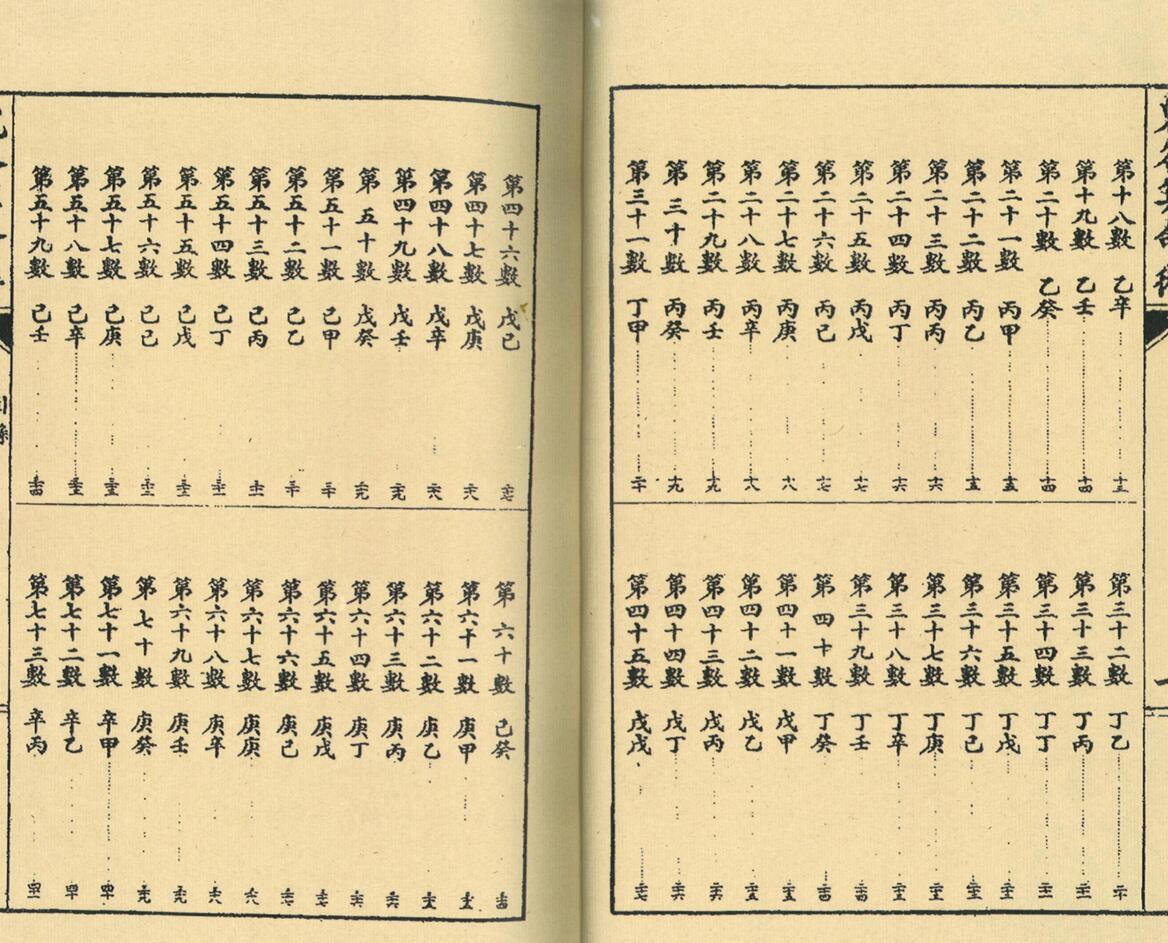 第十八數 乙辛 十三
第十九數 乙壬 十四
第二十數 乙癸 十四
第二十一數 丙甲 十五
第二十二數 丙乙 十五
第二十三數 丙丙 十六
第二十四數 丙丁 十六
第二十五數 丙戊 十七
第二十六數 丙己 十七
第二十七數 丙庚 十八
第二十八數 丙辛 十八
第二十九數 丙壬 十九
第三十數 丙癸 十九
第三十一數 丁甲 二十
第三十二數 丁乙 二十
第三十三數 丁丙 二十一
第三十四數 丁丁 二十一
第三十五數 丁戊 二十二
第三十六數 丁己 二十二
第三十七數 丁庚 二十三
第三十八數 丁辛 二十三
第三十九數 丁壬 二十四
第四十數 丁癸 二十四
第四十一數 戊甲 二十五
第四十二數 戊乙 二十五
第四十三數 戊丙 二十六
第四十四數 戊丁 二十六
第四十五數 戊戊 二十七
第四十六數 戊己 二十七
第四十七數 戊庚 二十八
第四十八數 戊辛 二十八
第四十九數 戊壬 二十九
第五十數 戊癸 二十九
第五十一數 己甲 三十
第五十二數 己乙 三十
第五十三數 己丙 三十一
第五十四數 己丁 三十一
第五十五數 己戊 三十二
第五十六數 己己 三十二
第五十七數 己庚 三十三
第五十八數 己辛 三十三
第五十九數 己壬 三十四
第六十數 己癸 三十四
第六十一數 庚甲 三十五
第六十二數 庚乙 三十五
第六十三數 庚丙 三十六
第六十四數 庚丁 三十六
第六十五數 庚戊 三十七
第六十六數 庚己 三十七
第六十七數 庚庚 三十八
第六十八數 庚辛 三十八
第六十九數 庚壬 三十九
第七十數 庚癸 三十九
第七十一數 辛甲 四十
第七十二數 辛乙 四十
第七十三數 辛丙 四十一